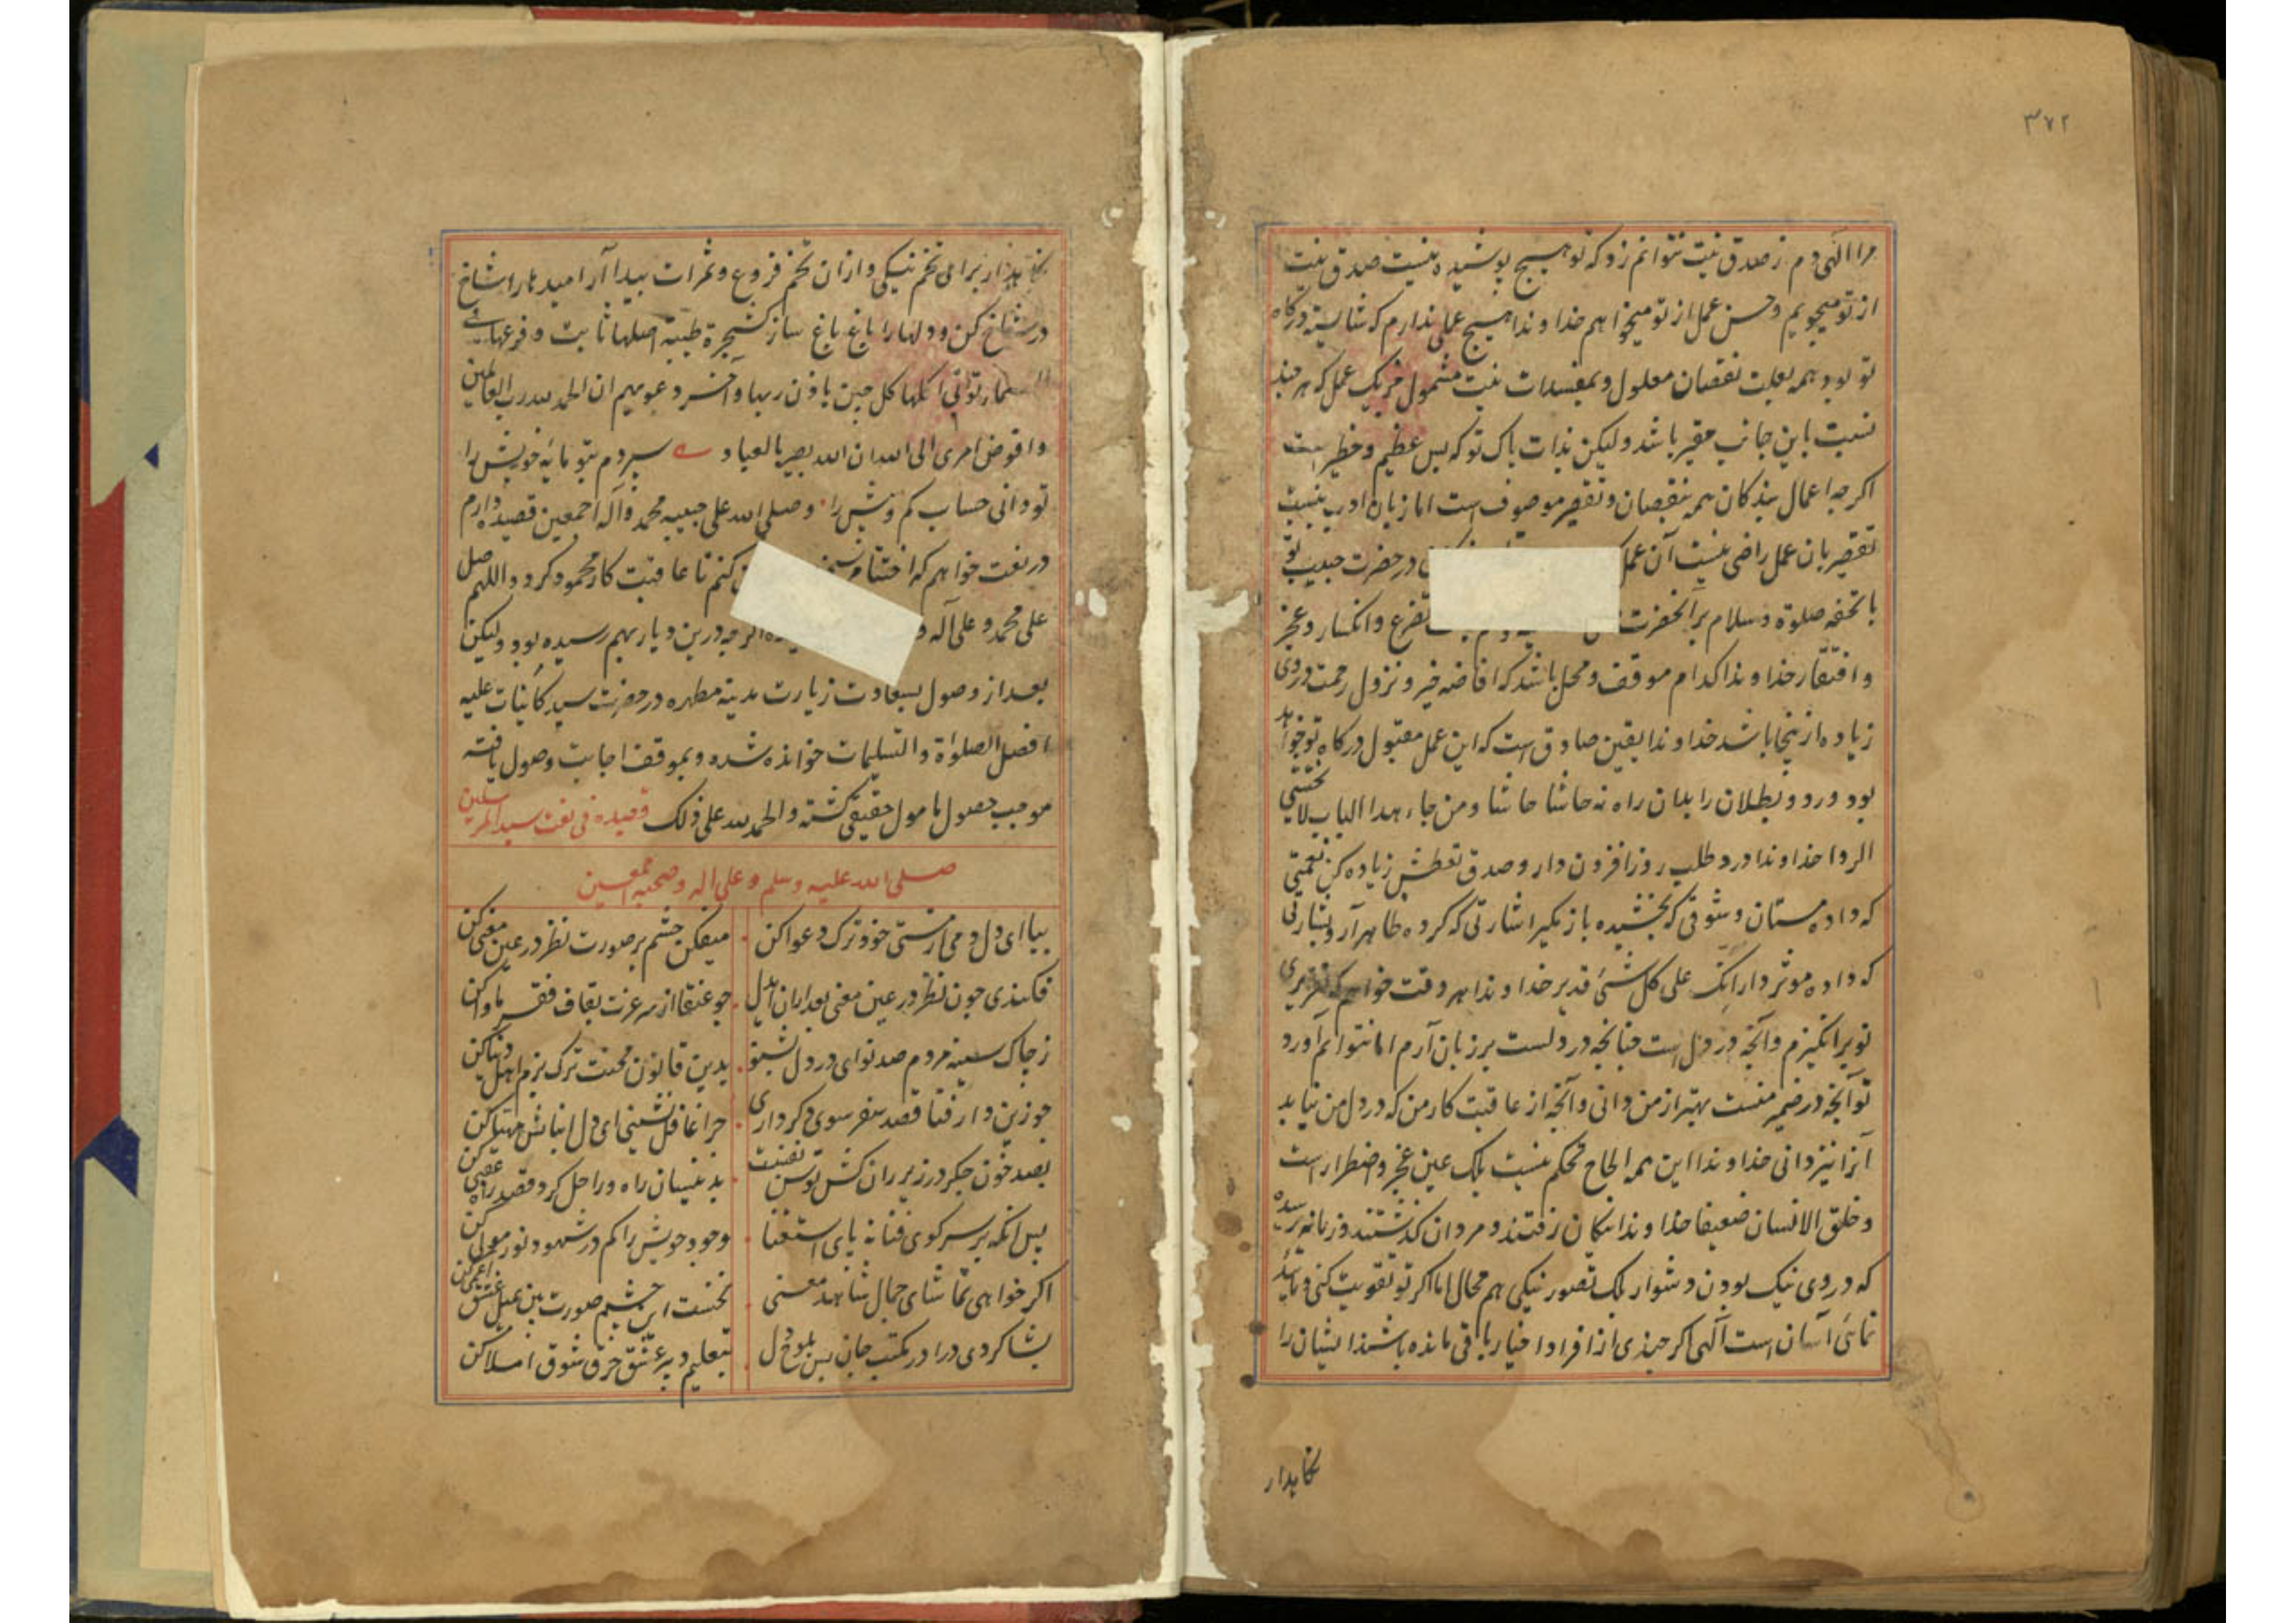 ۳۷۲
مرا الهی دم ز صدق نیت نتوانم زد که تو هیچ پوشیده نیست صدق نیت
از تو میجویم و حسن عمل از تو میخواهم خداوندا هیچ عملی ندارم که شایسته درگاه
تو بود همه بعلت نقصان معلول و بمفسدات نیت مشمول جز یک عمل که هر چند
نسبت باین جانب حقیر باشد ولیکن بذات پاک تو که بس عظیم و خطیر است
اگرچه اعمال بندکان همه بنقصان و تقصیر موصوف است اما زبان ادب بنسبت
تقصیر بان عمل راضی نیست آن عمل در حضرت حبیب تو
با تحفه صلوة و سلام بر آنحضرت تضرع و انکسار و عجز
و افتقار خداوندا کدام موقف و محل باشد که افاضه خیر و نزول رحمت در وی
زیاده از ینجا باشد خداوندا بیقین صادق است که این عمل مقبول درکاه تو خواهد
بود و رد و بطلان را بدان راه نه حاشا حاشا و من جاء هذا الباب لا یخشی
الردا خداوندا درد طلب روز افزون دار و صدق تعطش زیاده کن نعمتی
که داده مستان و شوقی که بخشیده باز مگیر اشارتی که کرده ظاهر آر و بشارتی
که داده موثر دار انک علی کل شئ قدیر خداوندا هر وقت خواهم که تقریری
نو برانگیزم و آنچه در دل است چنانچه در دلست بر زبان آرم اما نتوانم آورد
تو آنچه در ضمیر منست بهتر از من دانی و آنچه از عاقبت کار من که در دل من نیاید
آنرا نیز دانی خداوندا این همه الحاح تحکم نیست بلک عین عجز و اضطرار است
و خلق الانسان ضعیفا خداوندا نیکان رفتند و مردان گذشتند و زمانه رسیده
که در وی نیک بودن دشوار بلک تصور نیکی هم محال اما اگر تو تقویت کنی و تائید
نمائی آسان است الهی اگر چندی از افراد اخیار باقی مانده باشند ایشان را
نگاهدار
نگاهدار برای تخم نیکی و ازان تخم فروع و ثمرات پیدا آر امیدها را شاخ
در شاخ کن و دلها را باغ باغ ساز کشجرة طیبة اصلها ثابت و فرعها فی
السماء تؤتی اکلها کل حین باذن ربها و آخر دعویهم ان الحمد لله رب العالمین
و افوض امری الی الله ان الله بصیر بالعباد سپردم بتو مایه خویش را
تو دانی حساب کم و بیش را و صلی الله علی حبیبه محمد و آله اجمعین قصیده دارم
در نعت خواهم که اختتام سخن کنم تا عاقبت کار محمود گردد اللهم صل
علی محمد و علی آله و اگرچه درین دیار بهم رسیده بود ولیکن
بعد از وصول بسعادت زیارت مدینه مطهره در حضرت سید کائنات علیه
افضل الصلواة و التسلیمات خوانده شده و بموقف اجابت وصول یافته
موجب حصول مامول حقیقی گشته و الحمد لله علی ذلک قصیده فی نعت سید المرسلین
صلی الله علیه وسلم و علی اله و صحبه اجمعین
بیا ای دل دمی از هستی خود ترک دعوا کن میفکن چشم بر صورت نظر در عین معنی کن
فکندی چون نظر در عین معنی بعد ازان ایدل چو عنقا از سر عزت بقاف فقر ماوا کن
ز چاک سینه هر دم صد نوای درد دل بشنو بدین قانون محنت ترک بزم اهل دنیا کن
چو زین دار فنا قصد سفر سوی دگر داری چرا غافل نشینی ای دل اسبابش مهیا کن
بصد خون جگر در زیر ران کش توسن نفست بدینسان راه و راحل کرد و قصد راه عقبی کن
پس آنگه بر سر کوی فنا نه پای استغنا وجود خویش را گم در شهود نور مولی کن
اگر خواهی تماشای جمال شاهد معنی نخست این چشم صورت بین بمیل عشق اعمی کن
بشاگردی درا در مکتب جان پس بلوح دل بتعلیم دبیر عشق حرف شوق املا کن